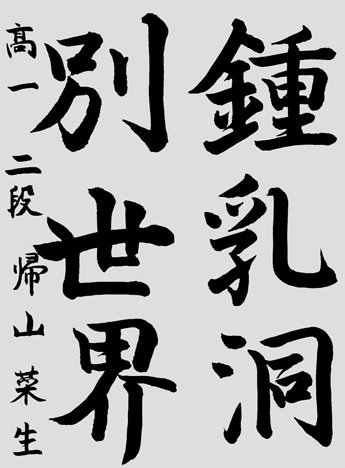 鍾乳洞
別世界
高一 二段 帰山菜生